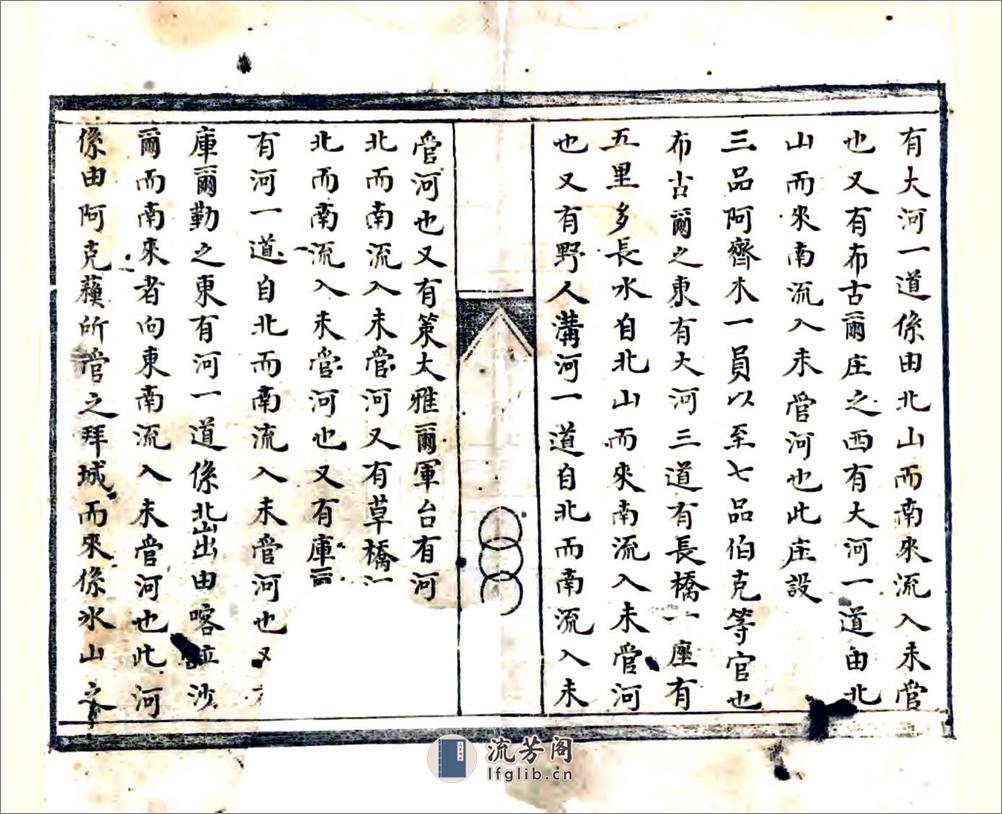 有大河一道係由北山而南來流入未管
也又有布古爾庄之西有大河一道由北
山而來南流入未管河也此庄設
三品阿齊木一員以至七品伯克等官也
布古爾之東有大河三道有長橋一座有
五里多長水自北山而來南流入未管河
也又有野人溝河一道自北而南流入未
管河也又有策大雅爾軍台有河
北而南流入未管河又有草橋
北而南流入未管河也又有庫
有河一道自北而南流入未管河也
庫爾勤之東有河一道係北山出由喀拉沙
爾而南來者向東南流入未管河也此河
係由阿克蘓所管之拜城而來係氷山之
流芳阁
lfglib.cn